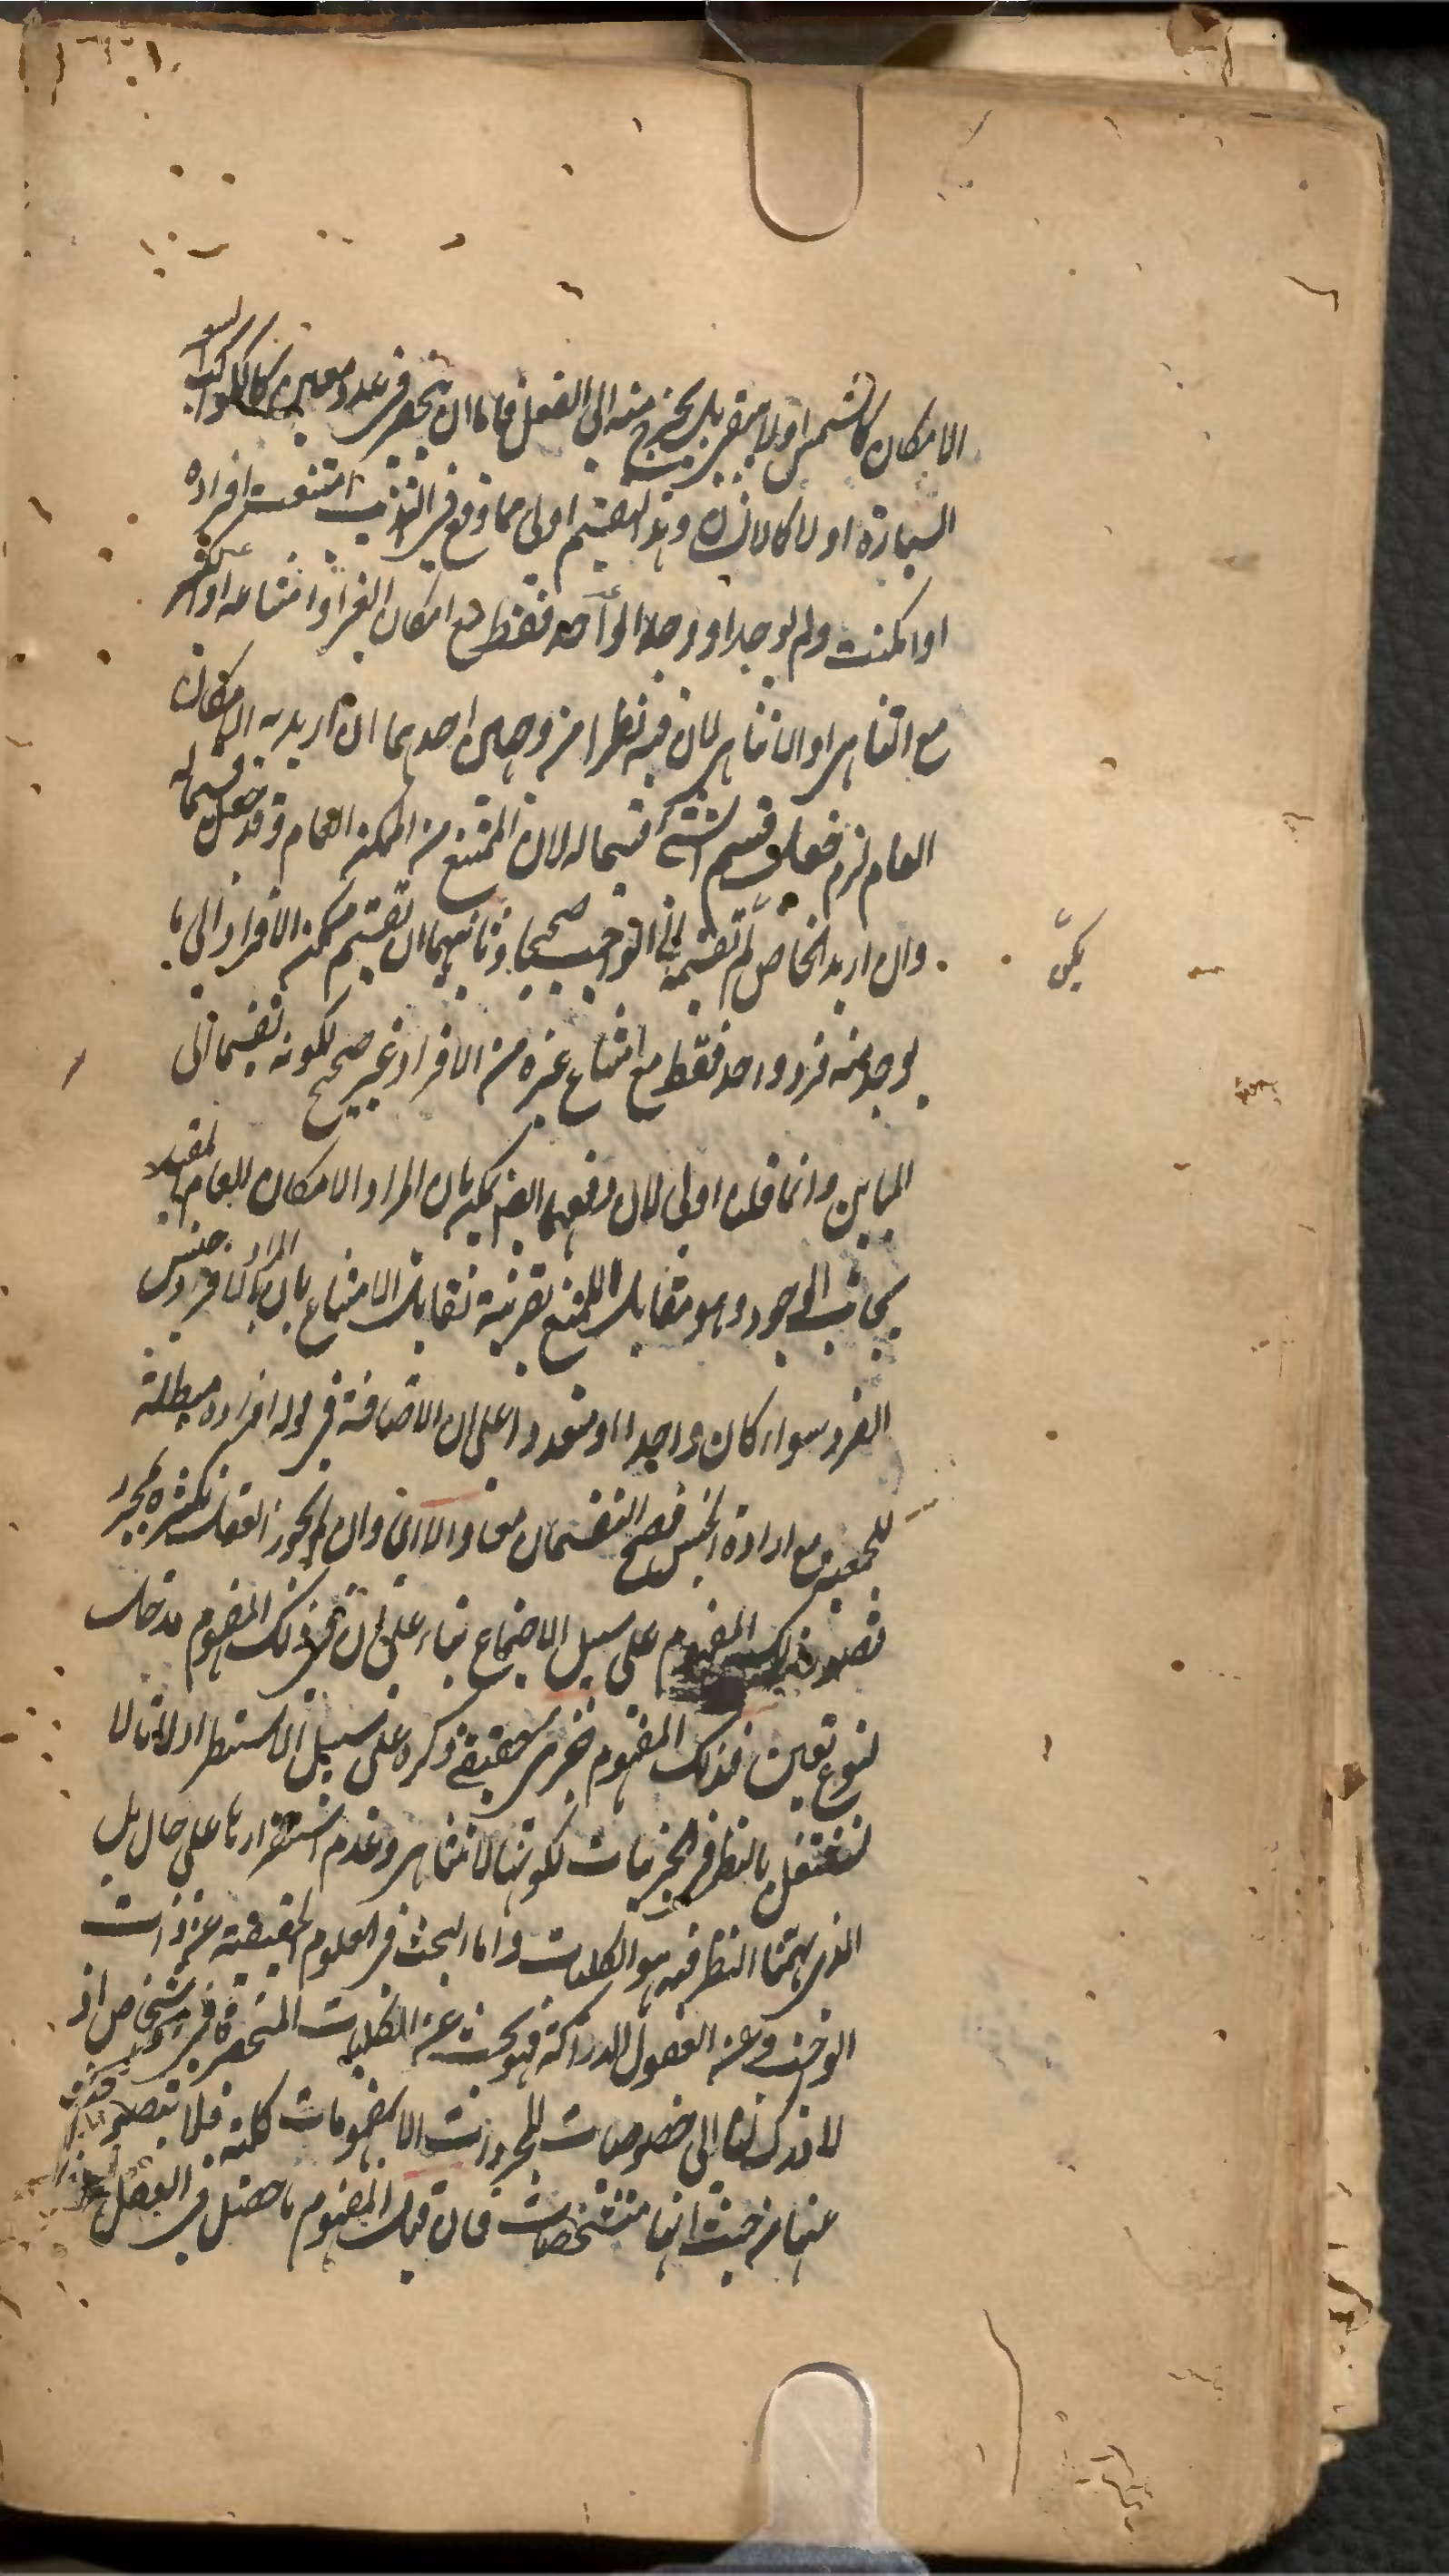 الامكان كالشمس اولا يبقى بل يخرج منه الى الفعل فاما ان ينحصر فى عدد معين كالكواكب
السيارة او لا كالانسان وهذا التقسيم اولى مما وقع فى التهذيب امتنعت افراده
او امكنت ولم توجد او وجد الواحد فقط مع امكان الغير او امتناعه او الكثير
مع التناهى او اللاتناهى لان فيه نظرا من وجهين احدهما ان اريد به الامكان
العام لزم جعل قسيم الشىء قسما له لان الممتنع من الممكن العام وقد جعل قسيما له
وان اريد الخاص لم يكن تقسيمه الى الواجب صحيحا وثانيهما ان تقسيم ممكن الافراد الى ما
يوجد منه فرد واحد فقط مع امتناع غيره من الافراد غير صحيح لكونه تقسيما الى
المباين وانما قلنا اولى لان دفعهما ايضا يمكن بان المراد الامكان العام المقيد
بجانب الوجود وهو مقابل الممتنع بقرينة تقابل الامتناع بان المراد بالافراد جنس
الفرد سواء كان واحدا او متعددا على ان الاضافة فى قوله افراده مبطلة
للجمعية مع ارادة الجنس فصح التقسيمان معا والا اى وان لم يجوز العقل تكثره بمجرد
تصور ذلك المفهوم على سبيل الاجتماع بناء على ان فى ذلك المفهوم مدخل
لنوع تعين فذلك المفهوم جزئى حقيقى ذكره على سبيل الاستطراد لانا لا
نشتغل بالنظر فى الجزئيات لكونها لا تتناهى وعدم استقرارها على حال بل
الذى يهمنا النظر فيه هو الكليات واما البحث فى العلوم الحقيقية عن ذات
الواجب وعن العقول المدركة فهو بحث عن الكليات المنحصرة فى اشخاص اذ
لا ندرك الى خصوصيات المجردات الا بمفهومات كلية فلا
عنها من حيث انها متشخصات فان قيل المفهوم ما حصل فى العقل